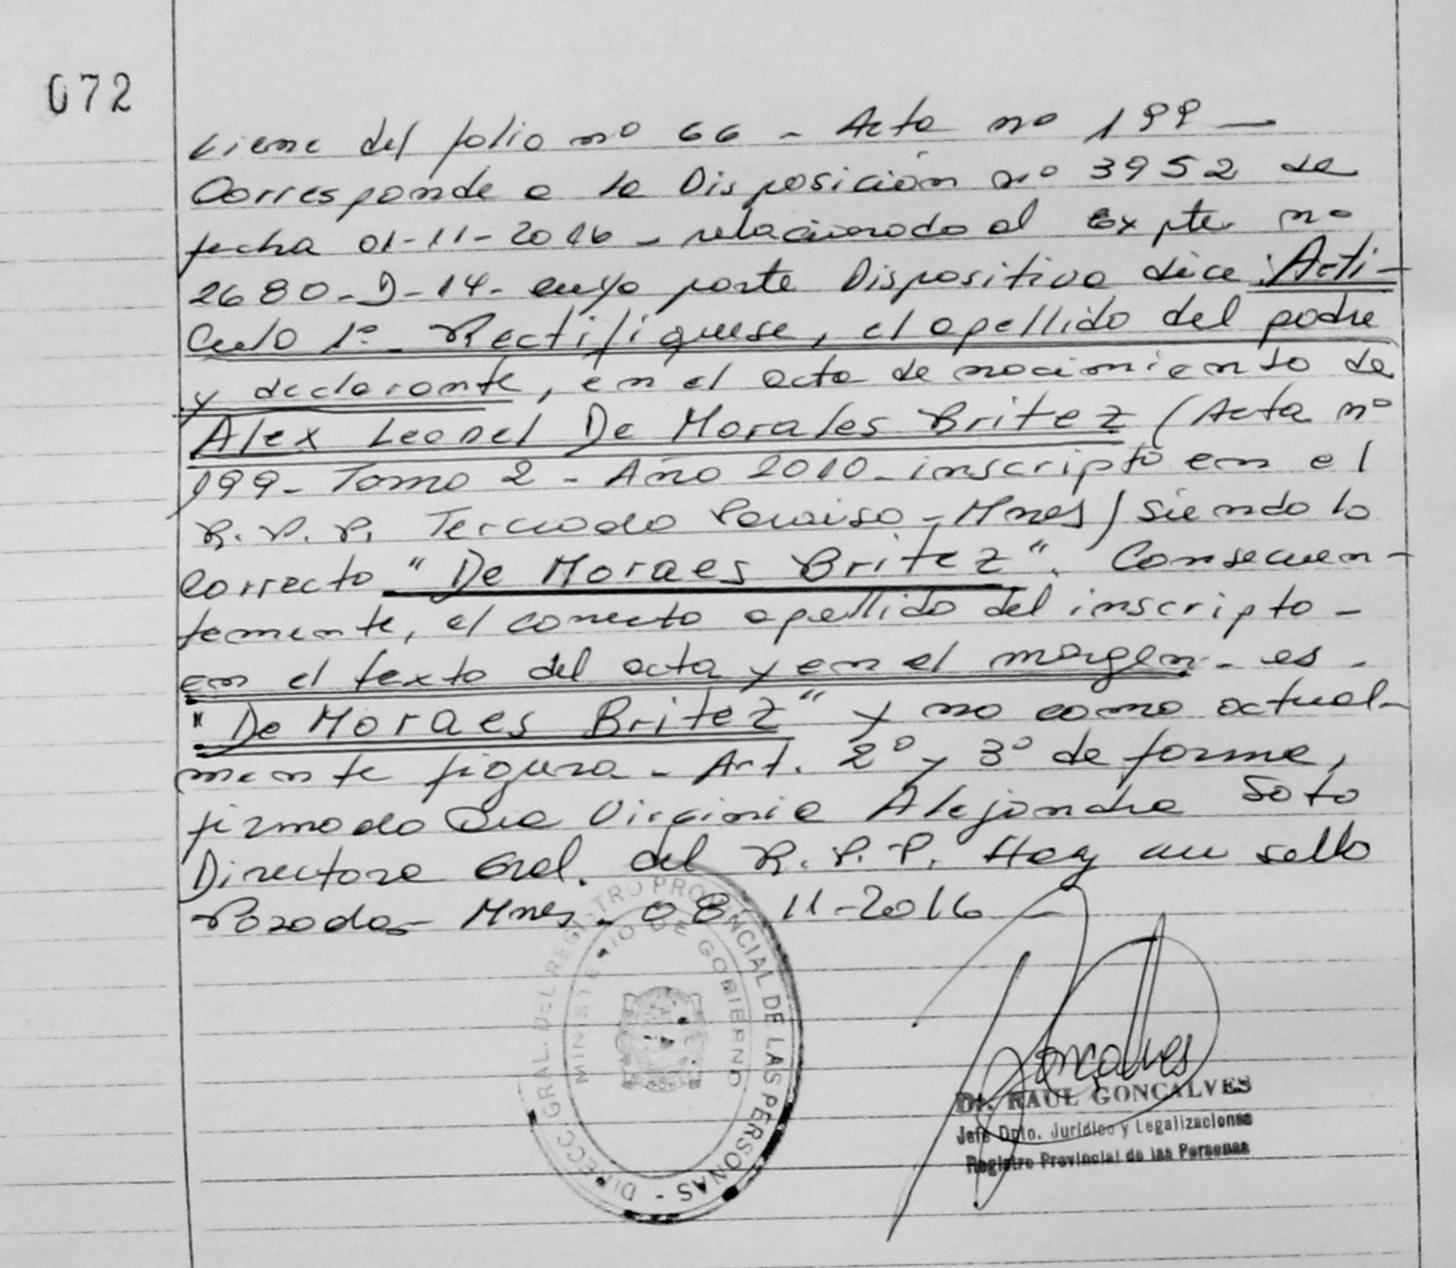 072
Viene del folio nº 66 - Acta nº 199 -
Corresponde a la Disposición nº 3952 de
fecha 01-11-2016 - relacionado al Expte nº
2680-D-14- cuya parte Dispositiva dice: Artí-
culo 1º- Rectifíquese, el apellido del padre
y declarante, en el acta de nacimiento de
Alex Leonel De Morales Britez (Acta nº
199- Tomo 2 - Año 2010 - inscripto en el
R.P.P. Terciado Paraíso - Mnes) siendo lo
correcto "De Moraes Britez". Consecuen-
temente, el correcto apellido del inscripto -
en el texto del acta y en el margen - es -
"De Moraes Britez" y no como actual-
mente figura - Art. 2º y 3º de forma,
firmado Dra Virginia Alejandra Soto
Directora Gral. del R.P.P. Hay un sello
Posadas- Mnes - 08-11-2016 -
DIRECC. GRAL. DEL REGISTRO PROVINCIAL DE LAS PERSONAS -
MINISTERIO DE GOBIERNO
Gonçalves
Dr. RAUL GONÇALVES
Jefe Dpto. Jurídico y Legalizaciones
Registro Provincial de las Personas